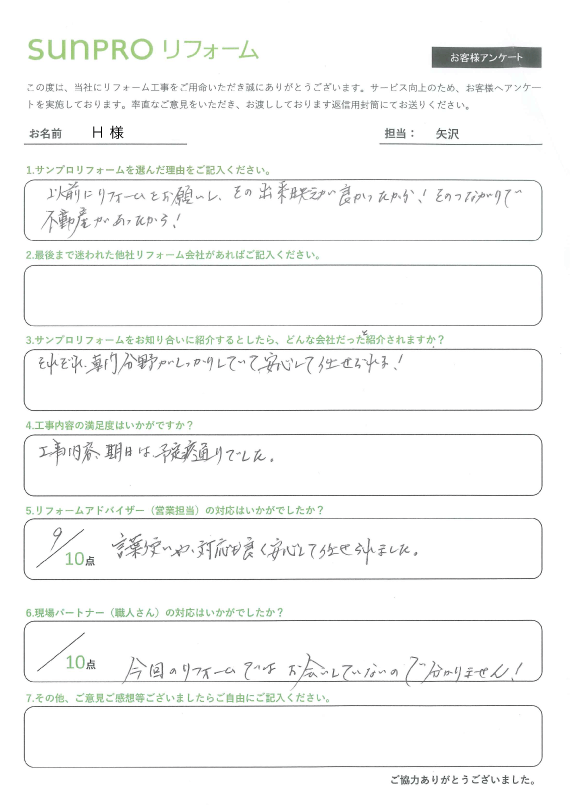 SUNPRO リフォーム
お客様アンケート
この度は、当社にリフォーム工事をご用命いただき誠にありがとうございます。サービス向上のため、お客様へアンケー
トを実施しております。率直なご意見をいただき、お渡ししております返信用封筒にてお送りください。
お名前 H 様 担当： 矢沢
1.サンプロリフォームを選んだ理由をご記入ください。
以前にリフォームをお願いし、その出来映えが良かったから！そのつながりで
不動産があったから！
2.最後まで迷われた他社リフォーム会社があればご記入ください。
3.サンプロリフォームをお知り合いに紹介するとしたら、どんな会社だったと紹介されますか？
それぞれ、専門分野がしっかりしていて安心して任せられる！
4.工事内容の満足度はいかがですか？
工事内容、期日は予定通りでした。
5.リフォームアドバイザー（営業担当）の対応はいかがでしたか？
9/10点 言葉使いや、対応も良く安心して任せられました。
6.現場パートナー（職人さん）の対応はいかがでしたか？
/10点 今回のリフォームではお会いしていないので分かりません！
7.その他、ご意見ご感想等ございましたらご自由にご記入ください。
ご協力ありがとうございました。